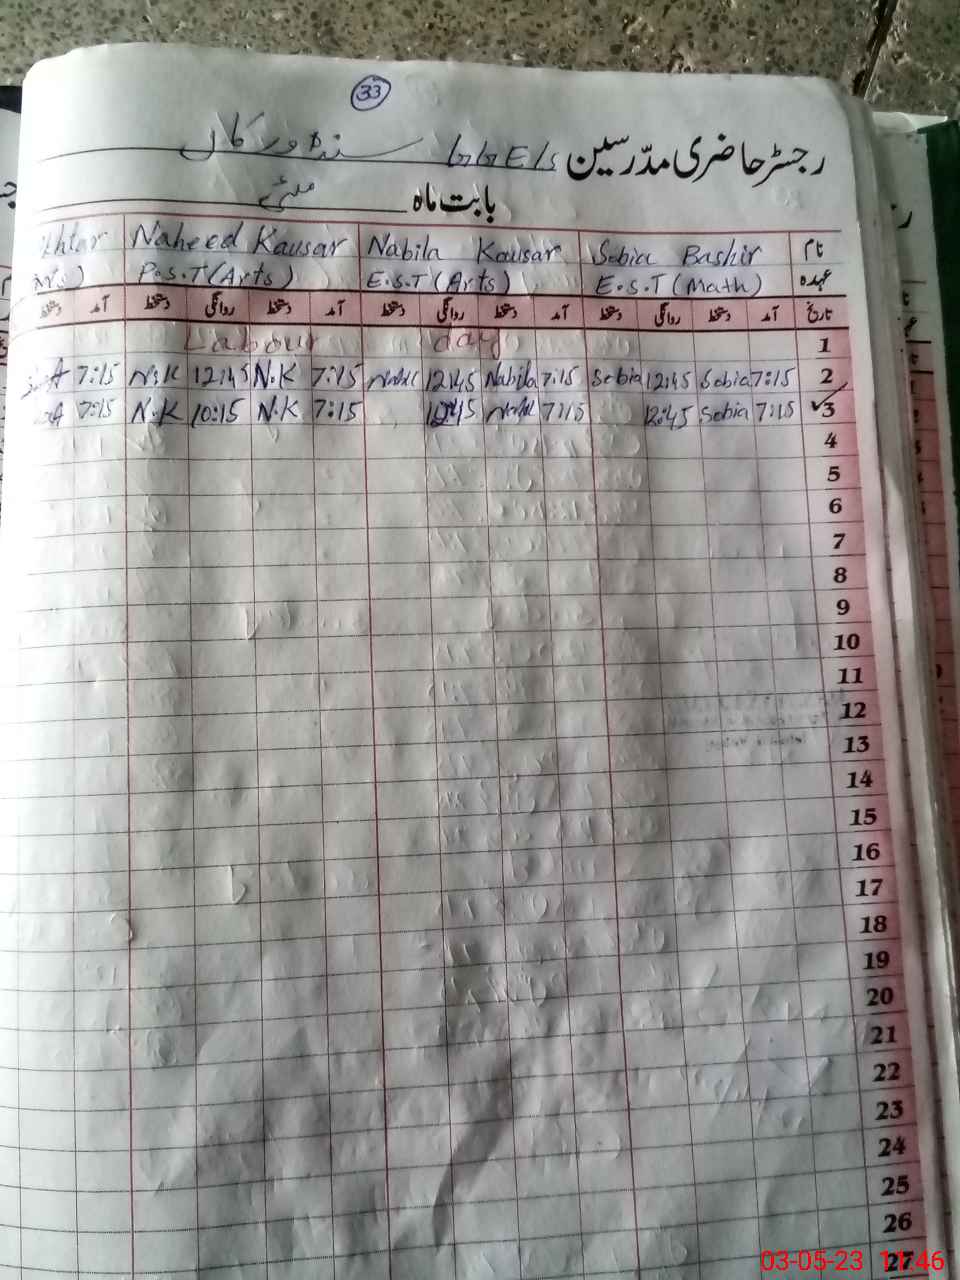 33
رجسٹر حاضری مدرسین GGE/S سندھور کلاں
بابت ماہ مئی
نام Sobia Bashir Nabila Kausar Naheed Kausar khtar
عہدہ E.S.T (Math) E.S.T (Arts) P.S.T (Arts)
تاریخ آمد دستخط روانگی دستخط آمد دستخط روانگی دستخط آمد دستخط روانگی دستخط آمد دستخط
1 Labour day
2 7:15 Sobia 12:45 Sobia 7:15 Nabila 12:45 Nabil 7:15 N.K 12:45 N.K 7:15
3 7:15 Sobia 12:45 7:15 Nabil 12:45 7:15 N.K 10:15 N.K 7:15
4
5
6
7
8
9
10
11
12
13
14
15
16
17
18
19
20
21
22
23
24
25
26
27
03-05-23 11:46